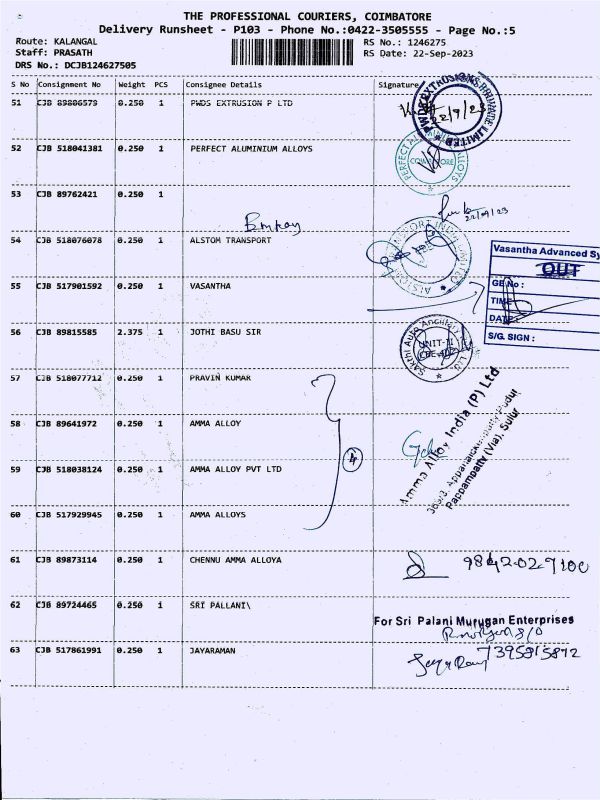 THE PROFESSIONAL COURIERS, COIMBATORE
Delivery Runsheet - P103 - Phone No.:0422-3505555 - Page No.:5
Route: KALANGAL
RS No.: 1246275
Staff: PRASATH
RS Date: 22-Sep-2023
DRS No.: DCJB124627505
S No Consignment No Weight PCS Consignee Details Signature
51 CJB 89806579 0.250 1 PWDS EXTRUSION P LTD
22/9/23
52 CJB 518041381 0.250 1 PERFECT ALUMINIUM ALLOYS
53 CJB 89762421 0.250 1
22/09/23
54 CJB 518076078 0.250 1 ALSTOM TRANSPORT
ALSTOM TRANSPORT INDIA LIMITED
Vasantha Advanced Sy
OUT
GE No :
TIME
DATE
S/G. SIGN :
55 CJB 517901592 0.250 1 VASANTHA
56 CJB 89815585 2.375 1 JOTHI BASU SIR
Sakthi Auto Ancillary
UNIT-II
57 CJB 518077712 0.250 1 PRAVIN KUMAR
58 CJB 89641972 0.250 1 AMMA ALLOY
4
Amma Alloy India (P) Ltd
Pappampatty (Via), Sulur
59 CJB 518038124 0.250 1 AMMA ALLOY PVT LTD
60 CJB 517929945 0.250 1 AMMA ALLOYS
61 CJB 89873114 0.250 1 CHENNU AMMA ALLOYA
62 CJB 89724465 0.250 1 SRI PALLANI\
For Sri Palani Murugan Enterprises
63 CJB 517861991 0.250 1 JAYARAMAN
7395815872